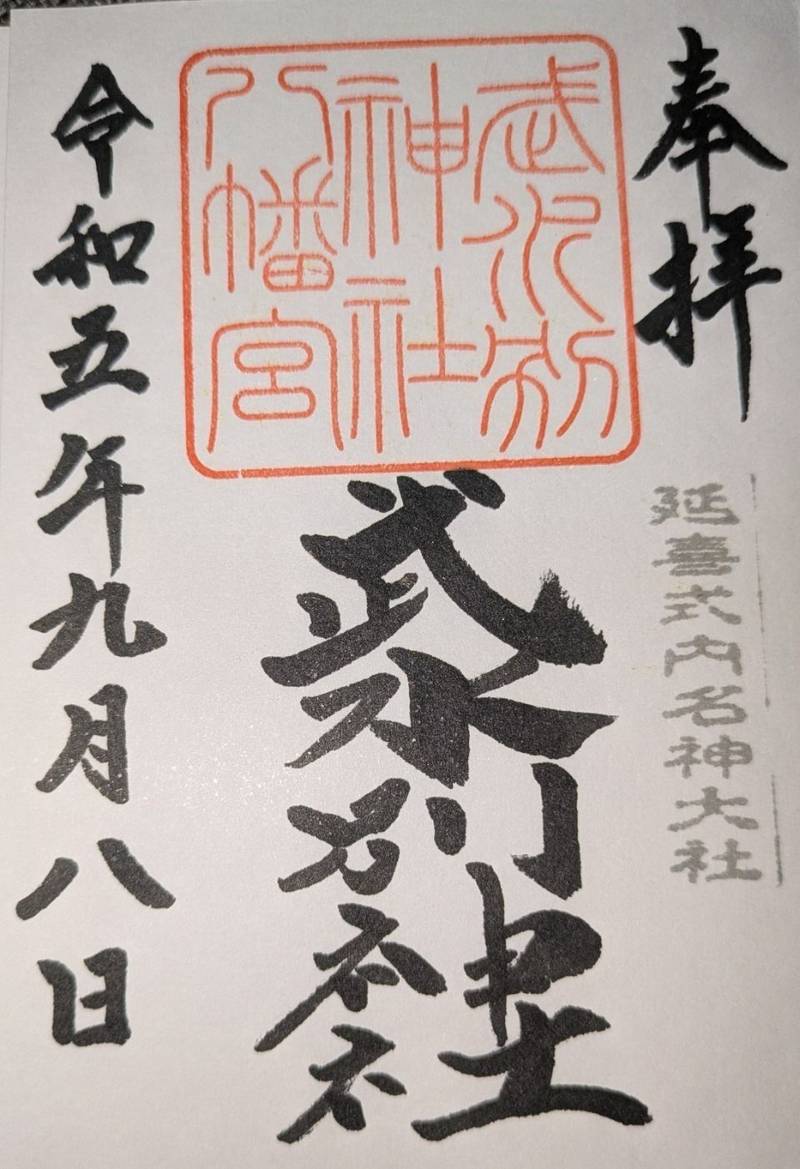 奉拝
延喜式内名神大社
武水別
神社
八幡宮
武水別神社
令和五年九月八日